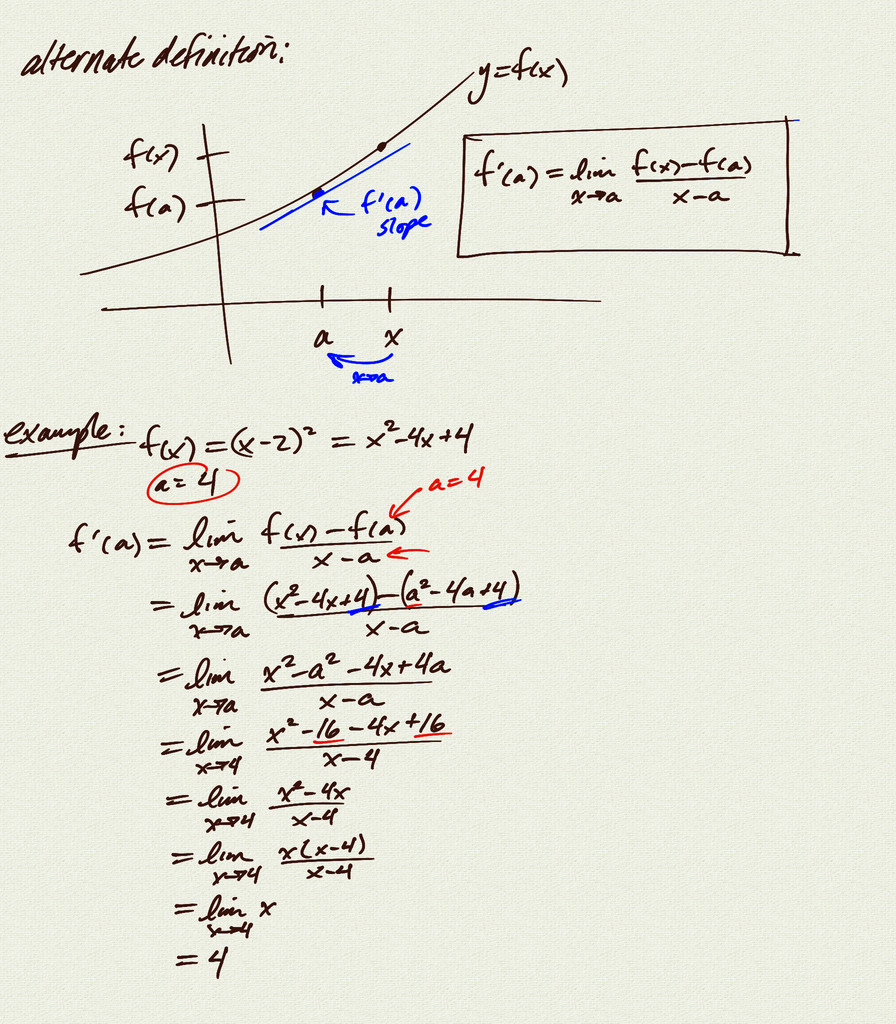 alternate definition:
y=f(x)
f(x)
f(a)
f'(a)
slope
f'(a) = lim x→a (f(x)-f(a))/(x-a)
a x
x→a
example: f(x) = (x-2)² = x²-4x+4
a=4
a=4
f'(a) = lim x→a (f(x)-f(a))/(x-a)
= lim x→a ((x²-4x+4)-(a²-4a+4))/(x-a)
= lim x→a (x²-a²-4x+4a)/(x-a)
= lim x→4 (x²-16-4x+16)/(x-4)
= lim x→4 (x²-4x)/(x-4)
= lim x→4 (x(x-4))/(x-4)
= lim x→4 x
= 4